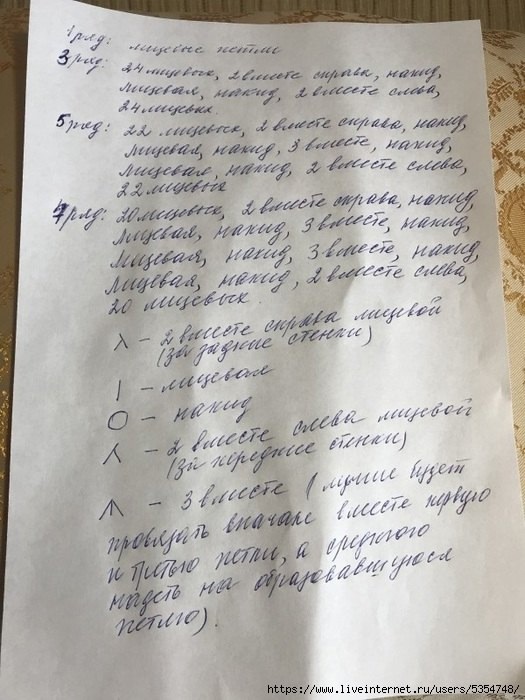 1 ряд: лицевые петли
3 ряд: 24 лицевых, 2 вместе справа, накид,
лицевая, накид, 2 вместе слева,
24 лицевых.
5 ряд: 22 лицевых, 2 вместе справа, накид,
лицевая, накид, 3 вместе, накид,
лицевая, накид, 2 вместе слева,
22 лицевых
7 ряд: 20 лицевых, 2 вместе справа, накид,
лицевая, накид, 3 вместе, накид,
лицевая, накид, 3 вместе, накид,
лицевая, накид, 2 вместе слева,
20 лицевых.
λ - 2 вместе справа лицевой
(за задние стенки)
| - лицевая
O - накид
- 2 вместе слева лицевой
(за передние стенки)
- 3 вместе (лучше будет
провязать вначале вместе первую
и третью петли, а среднюю
надеть на образовавшуюся
петлю).
https://www.liveinternet.ru/users/5354748/